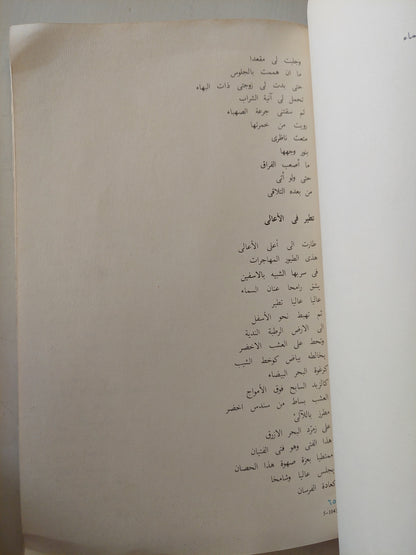 وجلبت لى مقعدا
ما ان هممت بالجلوس
حتى بدت لى زوجتى ذات البهاء
تحمل لى آنية الشراب
ثم سقتنى جرعة الصهباء
رويت من خمرتها
متعت ناظرى
بنور وجهها
ما أصعب الفراق
حتى ولو أتى
من بعده التلاقى
تطير فى الأعالى
طارت الى أعلى الأعالى
هذى الطيور المهاجرات
فى سربها الشبيه بالاسفين
يشق رامحا عنان السماء
عاليا عاليا تطير
ثم تهبط نحو الأسفل
الى الارض الرطبة الندية
وتحط على العشب الاخضر
يخالطه بياض كوخط الشيب
كرغوة البحر البيضاء
كالزبد السابح فوق الأمواج
العشب بساط من سندس اخضر
مطرز باللآلئ
على زمرّد البحر الازرق
هذا الفتى وهو فتى الفتيان
ممتطيا بعزة صهوة هذا الحصان
يجلس عاليا وشامخا
كعادة الفرسان